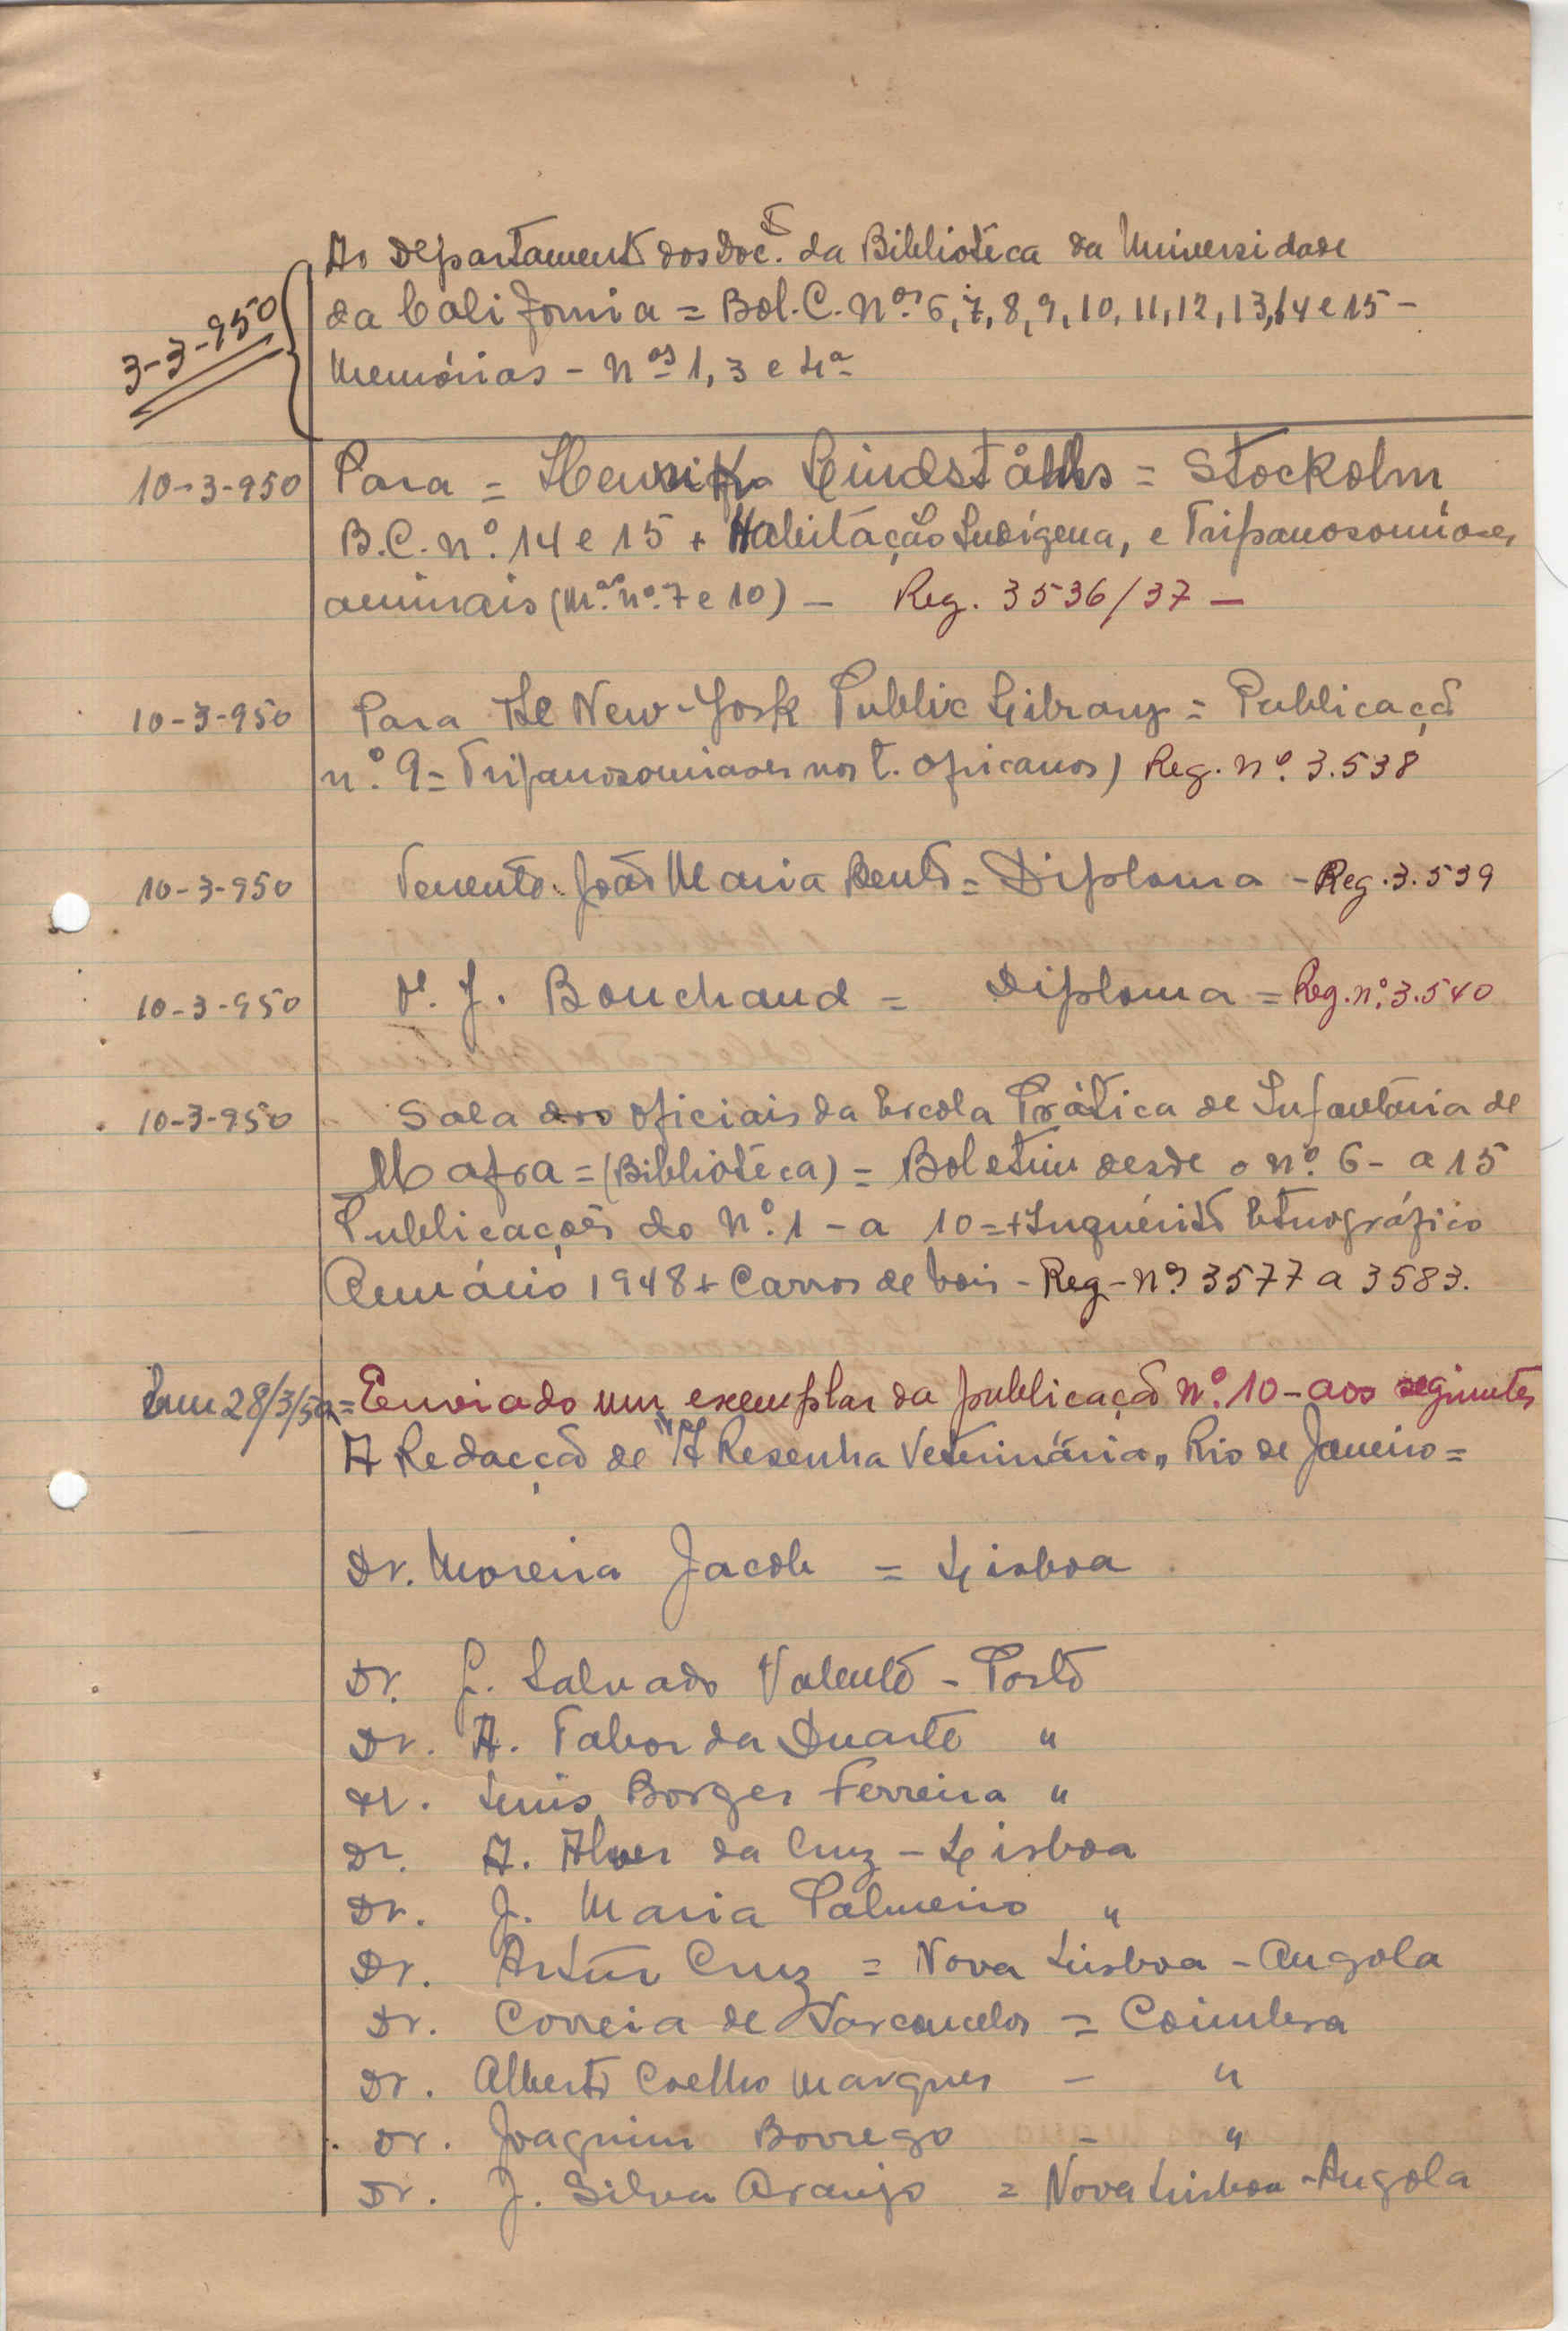 Ao Departamento dos Doc.tos da Biblioteca da Universidade
3-3-950
da California = Bol. C. nos. 6, 7, 8, 9, 10, 11, 12, 13, 14 e 15 -
Memórias - nos 1, 3 e 4ª
10-3-950 Para = Henrik Lindståhls = Stockolm
B.C. nº. 14 e 15 + Habitação Indígena, e Tripanosomiases
animais (M.as nº. 7 e 10) - Reg. 3536/37 -
10-3-950 Para The New-York Public Library = Publicação
nº. 9 = Tripanosomiases nos t. africanos) Reg. nº. 3.538
10-3-950 Tenente João Maria Bento = Diploma - Reg. 3.539
10-3-950 J. Bouchaud = Diploma = Reg. nº. 3.540
10-3-950 Sala dos oficiais da Escola Prática de Infantaria de
Mafra = (Biblioteca) = Boletim desde o nº. 6 - a 15
Publicações do Nº. 1 - a 10 = + Inquérito Etnográfico
Anuário 1948 + Carros de bois - Reg - nº 3577 a 3583.
Em 28/3/50 = Enviado um exemplar da publicação nº. 10 - aos seguintes
A Redacção de "A Resenha Veterinária" Rio de Janeiro =
Dr. Moreira Jacob = Lisboa
Dr. J. Salvado Valente - Porto
Dr. A. Tabor da Duarte "
Dr. Luis Borges Ferreira "
Dr. A. Alves da Cruz - Lisboa
Dr. J. Maria Palmeiro "
Dr. Artur Cruz = Nova Lisboa - Angola
Dr. Correia de Vasconcelos = Coimbra
Dr. Alberto Coelho Marques - "
Dr. Joaquim Borrego - "
Dr. J. Silva Araujo = Nova Lisboa - Angola